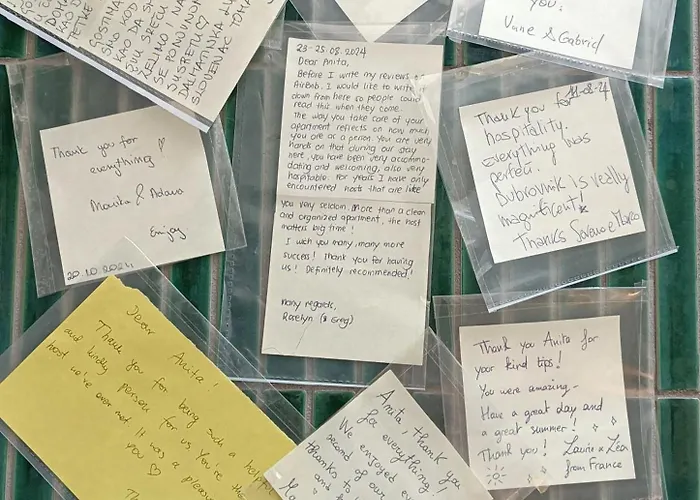 GOSTINA
SMO KOD
KAO DA S
SVU SREĆU
ŽELIMO I NA
SE PONOVNO
SUSRETLI?
DALMATINKA
SLOVENAC
you!
& Gabriel
Thank you for
everything
Marika & Adava
Enjoy
20.10.2024.
23-25.08.2024
Dear Anita,
Before I write my reviews to
AirBnB. I would like to write it
down from here so people could
read this when they come.
The way you take care of your
apartment reflects on how much
you are a person. You are very
hands on that during our stay
here, you have been very accommo-
dating and welcoming, also very
hospitable. For years I have only
encountered hosts that are like
you very seldom. More than a clean
and organized apartment, the host
matters big time!
I wish you many, many more
success! Thank you for having
us! Definitely recommended!
Many regards,
Roselyn (& Greg)
Thank you for
hospitality.
Everything was
perfect.
Dubrovnik is really
magnificent!
Thanks
Thank you Anita for
your kind tips!
You were amazing -
Have a great day and
a great summer!
Thank you! Laurie x Léa
from France
Dear Anita!
Thank you for being such a helpful
and kindly person for us You're the
host we've ever met It was a pleasure
you
Anita, thank you
for everything!
We enjoyed
second of our
thanks to
and